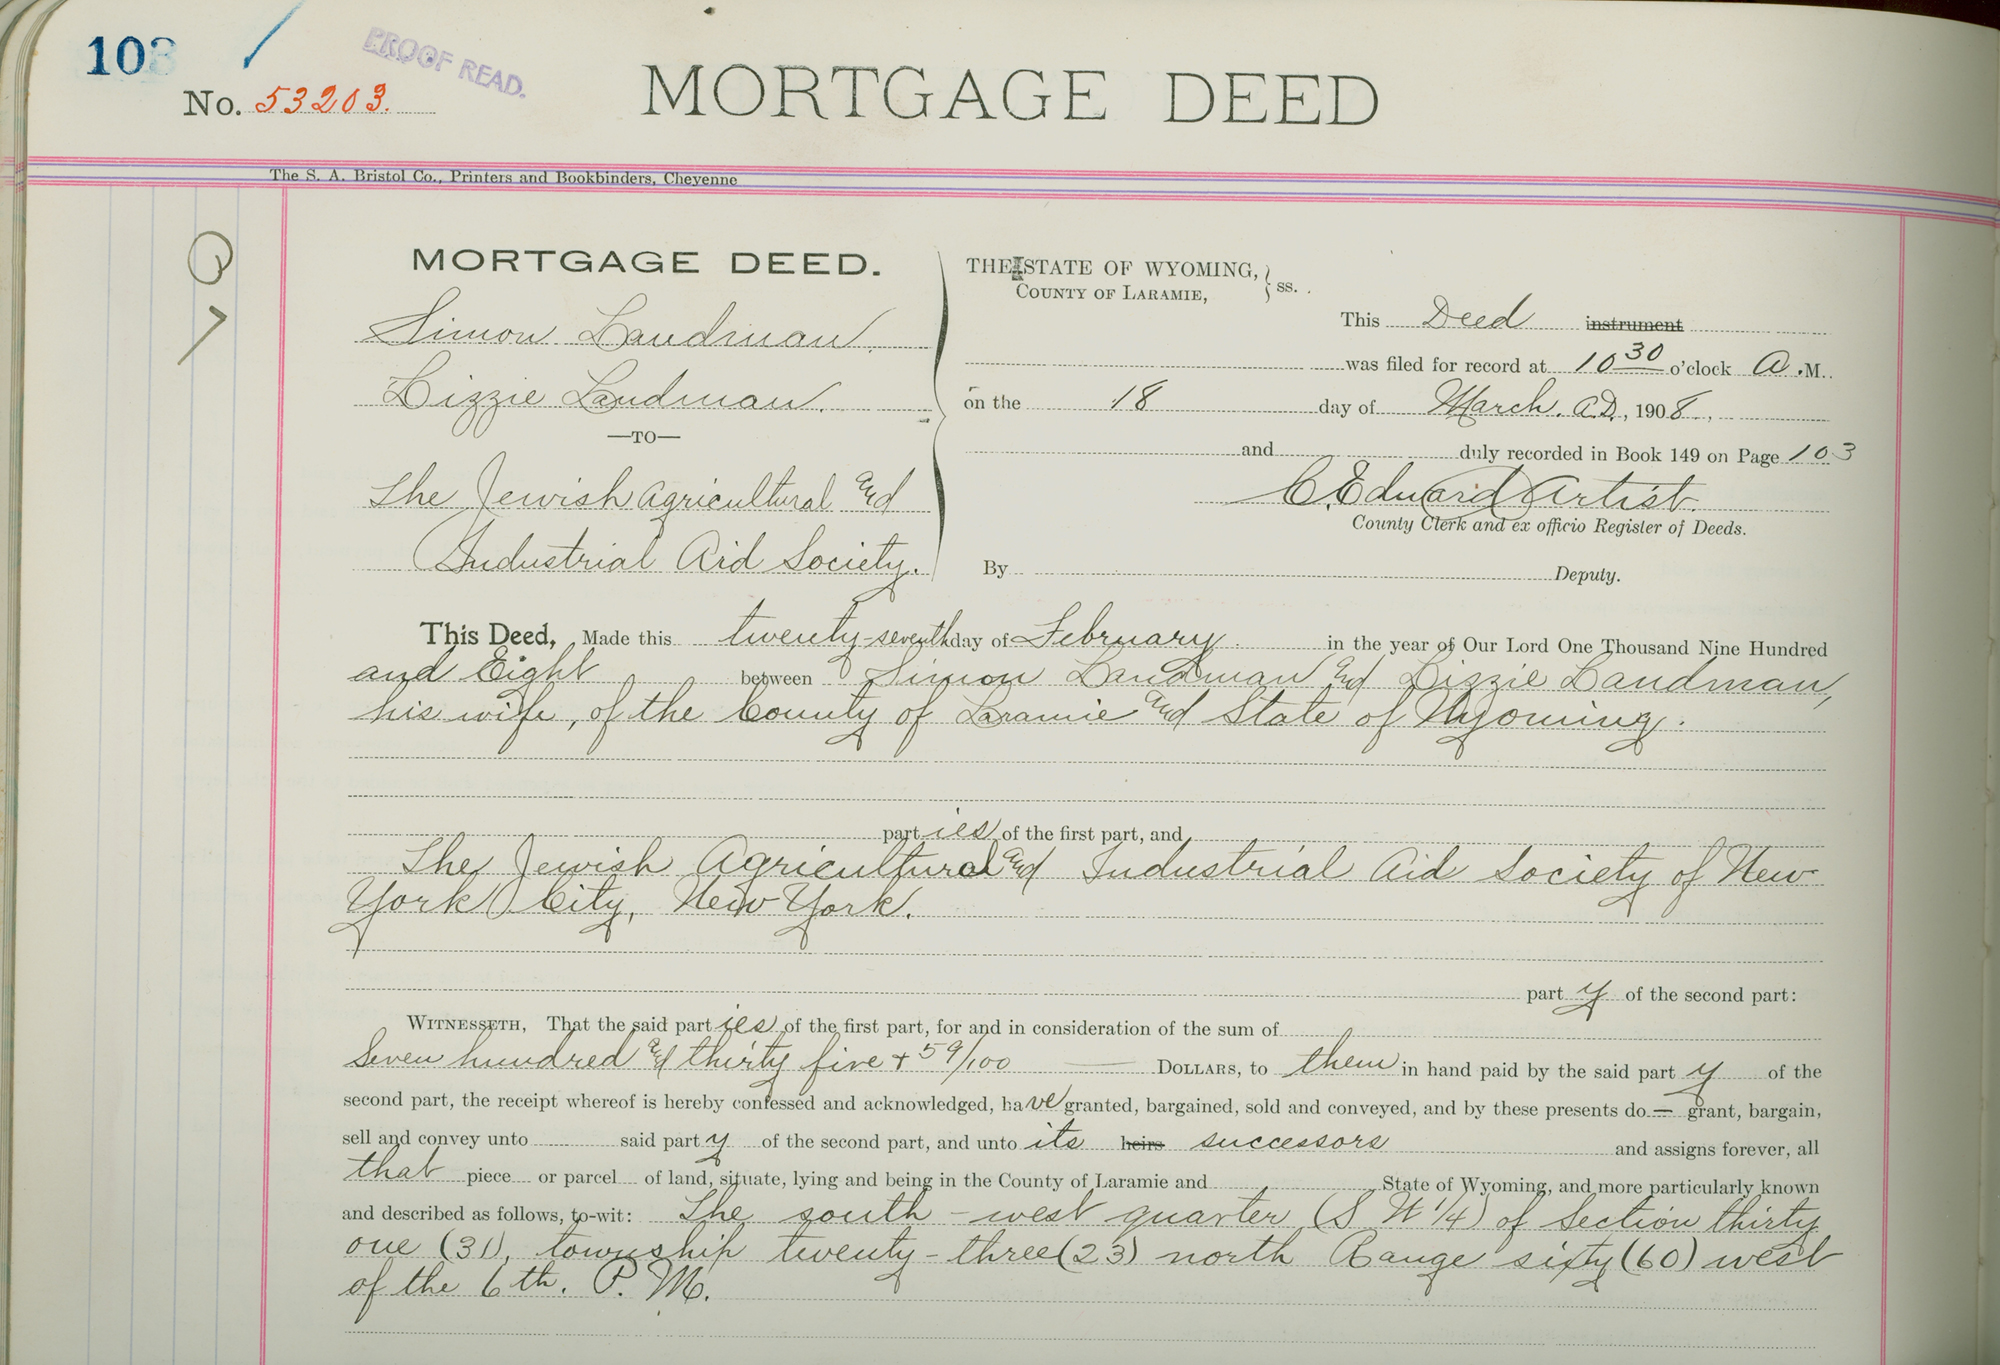 103
PROOF READ.
No. 53203.
MORTGAGE DEED
The S. A. Bristol Co., Printers and Bookbinders, Cheyenne
MORTGAGE DEED.
Simon Landman
Lizzie Landman.
—TO—
The Jewish Agricultural and
Industrial Aid Society.
THE STATE OF WYOMING, } ss.
COUNTY OF LARAMIE,
This Deed instrument
was filed for record at 10 30 o'clock A.M.
on the 18 day of March. A.D., 1908,
and duly recorded in Book 149 on Page 103
C. Edward Artist.
County Clerk and ex officio Register of Deeds.
By Deputy.
This Deed, Made this twenty-seventh day of February. in the year of Our Lord One Thousand Nine Hundred
and Eight between Simon Landman and Lizzie Landman,
his wife, of the County of Laramie and State of Wyoming.
parties of the first part, and
The Jewish Agricultural and Industrial Aid Society of New
York City, New York.
party of the second part:
WITNESSETH, That the said parties of the first part, for and in consideration of the sum of
Seven hundred and thirty five + 59/100 — DOLLARS, to them in hand paid by the said party of the
second part, the receipt whereof is hereby confessed and acknowledged, have granted, bargained, sold and conveyed, and by these presents do — grant, bargain,
sell and convey unto said party of the second part, and unto its heirs successors and assigns forever, all
that piece or parcel of land, situate, lying and being in the County of Laramie and State of Wyoming, and more particularly known
and described as follows, to-wit: The south-west quarter (S W 1/4) of Section thirty
one (31), township twenty-three (23) north Range sixty (60) west
of the 6th. P. M.